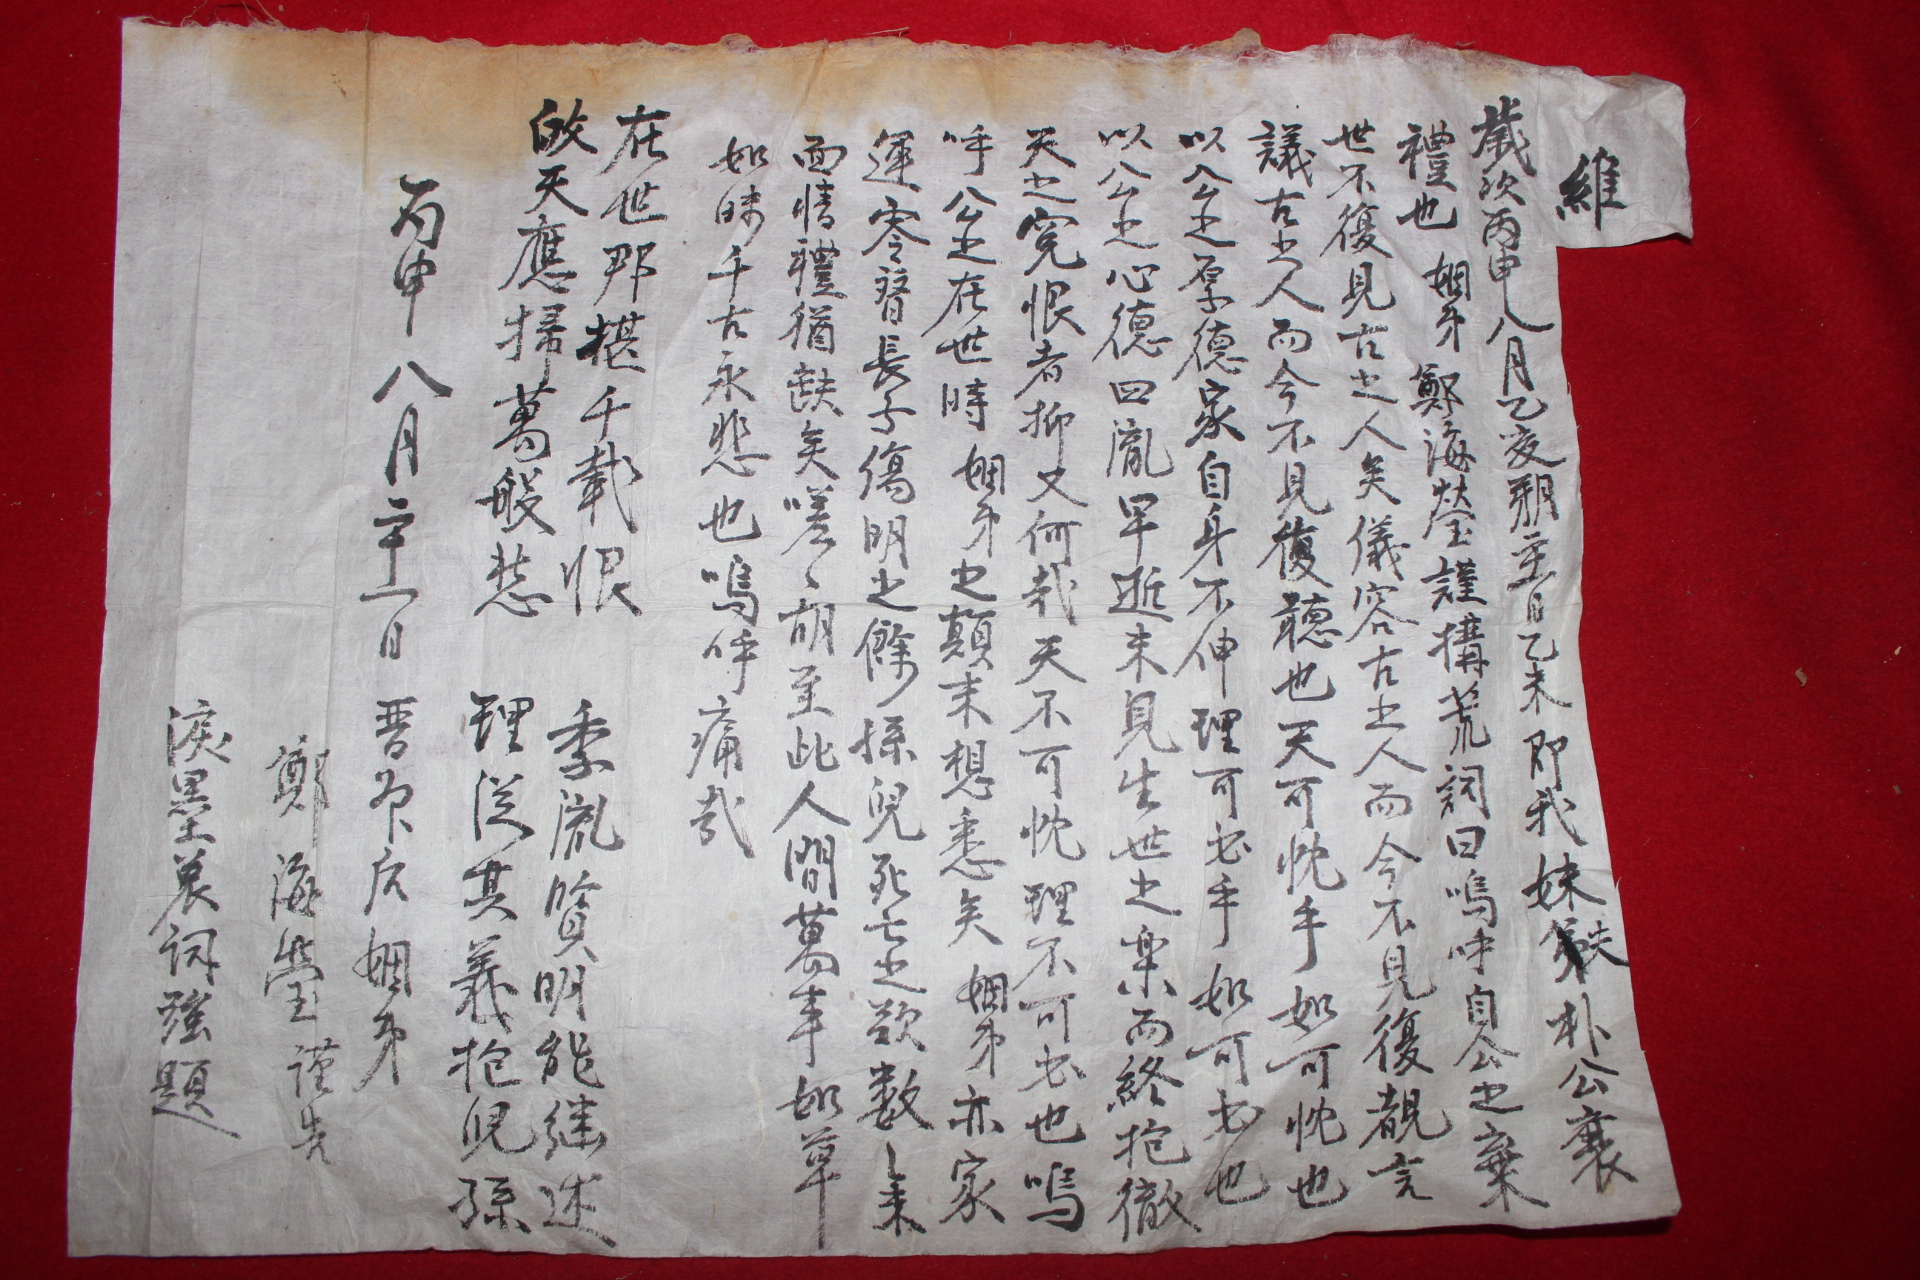 維
歲次丙申八月乙亥朔二十一日乙未即我妹夫朴公襄
禮也 姻弟鄭海瑩謹搆荒詞曰嗚呼自公之棄
世不復見古之人矣儀容古之人而今不見復覩言
議古之人而今不見復聽也天可忱乎如可忱也
以公之厚德家自身不伸理可必乎如可必也
以公之心德四胤早逝未見生世之樂而終抱徹
天之寃恨者抑又何哉天不可忱理不可必也嗚
呼公之在世時姻弟之顛末想悉矣姻弟亦家
運零替長子傷明之餘孫兒死亡之歎數
面情禮猶缺矣嗟嗟胡至此人間萬事如草
如昧千古永悲也嗚呼痛哉
在世那堪千載恨 季胤賢明能継述
啟天應掃萬般愁 理從其義抱兒孫
丙申八月二十一日 晋州后姻弟
鄭海瑩謹告
淚墨哀詞強題